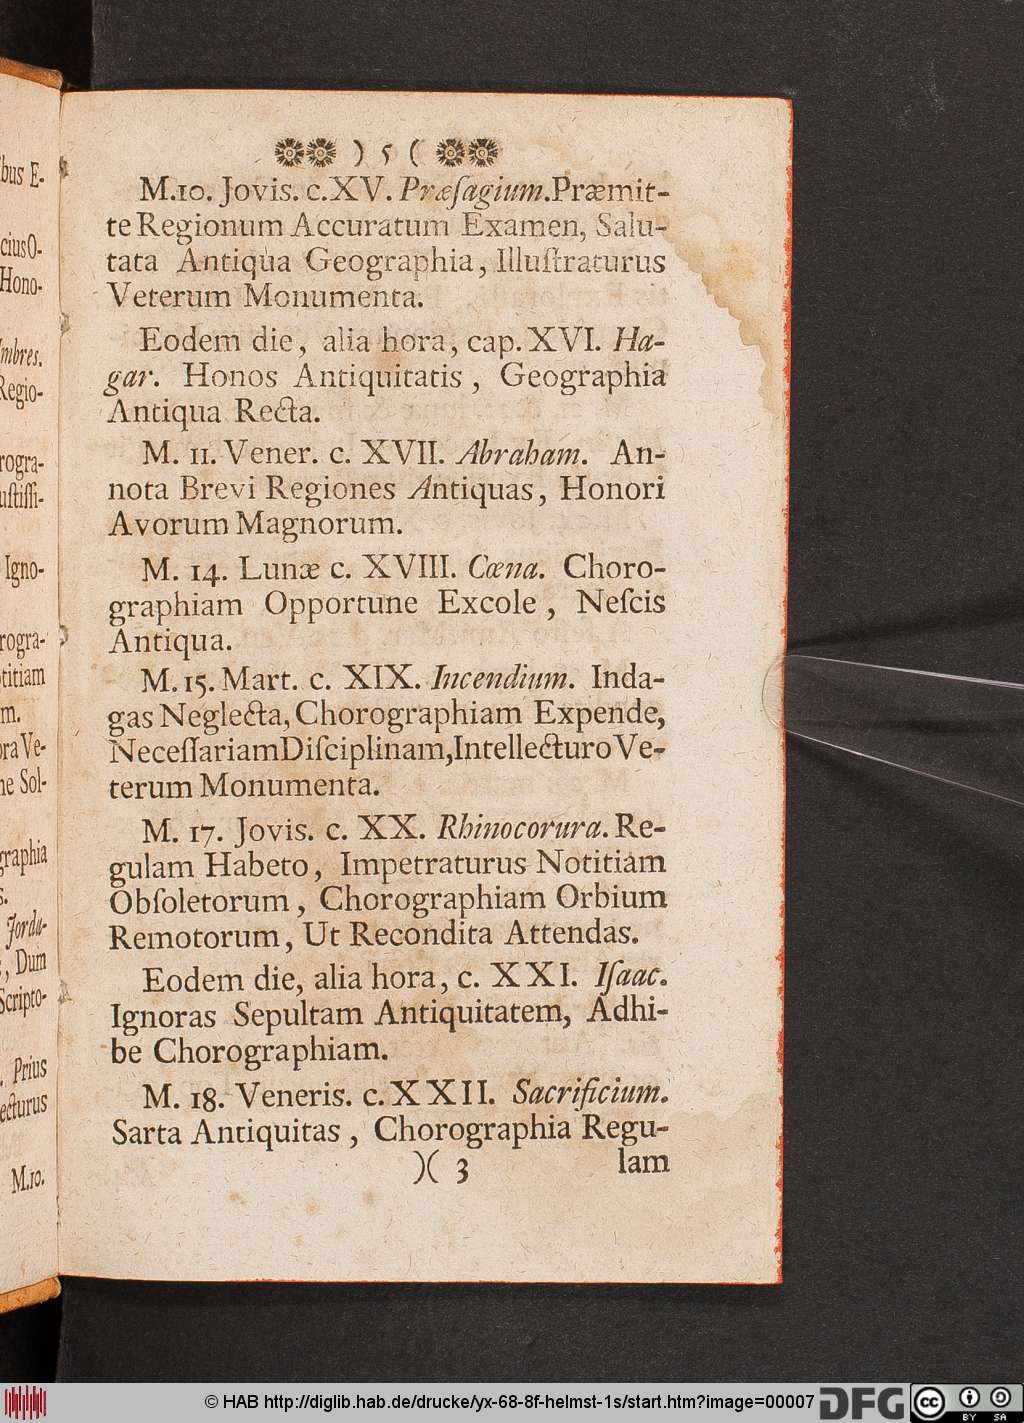 bus E-
ciusO-
Hono-
Imbres.
Regio-
rogra-
uſtiſſi-
Igno-
rogra-
otitiam
m.
ora Ve-
ne Sol-
graphia
s.
Jorda-
, Dum
Scripto-
. Prius
ecturus
M.10.
) 5 (
M.10. Jovis. c.XV. Præſagium.Præmit-
te Regionum Accuratum Examen, Salu-
tata Antiqua Geographia, Illuſtraturus
Veterum Monumenta.
Eodem die, alia hora, cap. XVI. Ha-
gar. Honos Antiquitatis, Geographia
Antiqua Recta.
M. 11. Vener. c. XVII. Abraham. An-
nota Brevi Regiones Antiquas, Honori
Avorum Magnorum.
M. 14. Lunæ c. XVIII. Cœna. Choro-
graphiam Opportune Excole, Neſcis
Antiqua.
M. 15. Mart. c. XIX. Incendium. Inda-
gas Neglecta, Chorographiam Expende,
NeceſſariamDiſciplinam,Intellecturo Ve-
terum Monumenta.
M. 17. Jovis. c. XX. Rhinocorura. Re-
gulam Habeto, Impetraturus Notitiam
Obſoletorum, Chorographiam Orbium
Remotorum, Ut Recondita Attendas.
Eodem die, alia hora, c. XXI. Iſaac.
Ignoras Sepultam Antiquitatem, Adhi-
be Chorographiam.
M. 18. Veneris. c. XXII. Sacrificium.
Sarta Antiquitas, Chorographia Regu-
)( 3 lam
© HAB http://diglib.hab.de/drucke/yx-68-8f-helmst-1s/start.htm?image=00007 DFG cc BY SA